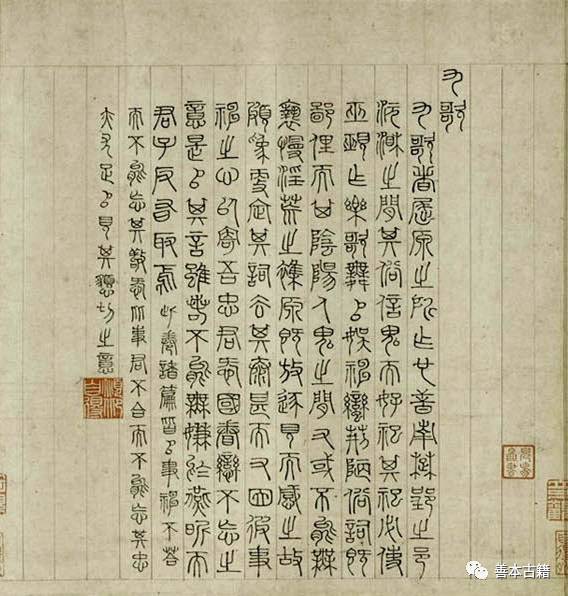 九歌
九歌者屈原之所作也昔南楚郢之邑
沅湘之間其俗信鬼而好祀其祀必使
巫覡作樂歌舞以娛神蠻荊陋俗詞既
鄙俚而其陰陽人鬼之間又或不能無
褻慢淫荒之雜原既放逐見而感之故
頗為更定其詞去其泰甚而又因彼事
神之心以寄吾忠君愛國眷戀不忘之
意是以其言雖若不能無嫌於燕昵而
君子反有取焉此卷諸篇皆以事神不答
而不能忘其敬愛比事君不合而不能忘其忠
赤尤足以見其懇切之意
善本古籍